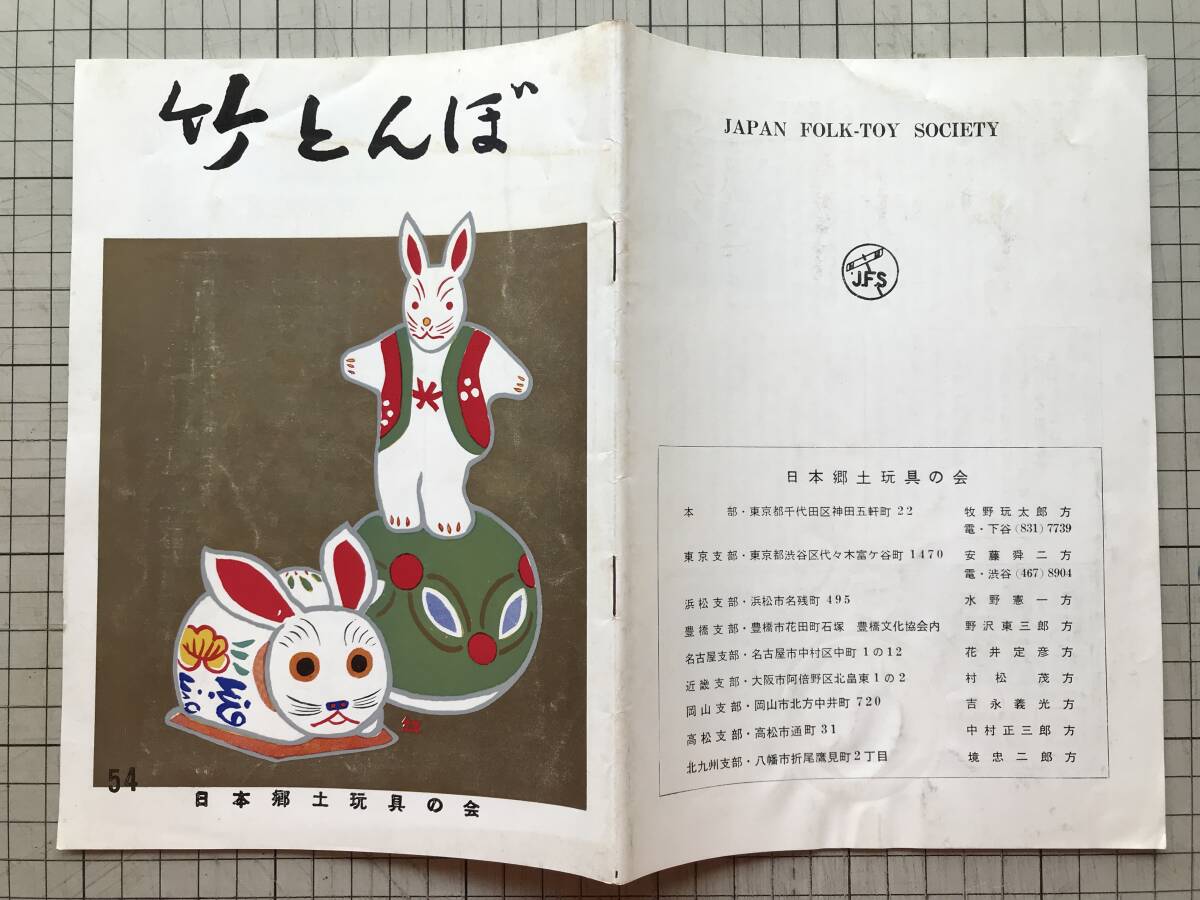 竹とんぼ
54
日本郷土玩具の会
JAPAN FOLK-TOY SOCIETY
JFS
日本郷土玩具の会
本部・東京都千代田区神田五軒町22 牧野玩太郎方
電・下谷(831)7739
東京支部・東京都渋谷区代々木富ケ谷町1470 安藤舜二方
電・渋谷(467)8904
浜松支部・浜松市名残町495 水野憲一方
豊橋支部・豊橋市花田町石塚 豊橋文化協会内 野沢東三郎方
名古屋支部・名古屋市中村区中町1の12 花井定彦方
近畿支部・大阪市阿倍野区北畠東1の2 村松茂方
岡山支部・岡山市北方中井町720 吉永義光方
高松支部・高松市通町31 中村正三郎方
北九州支部・八幡市折尾鷹見町2丁目 境忠二郎方